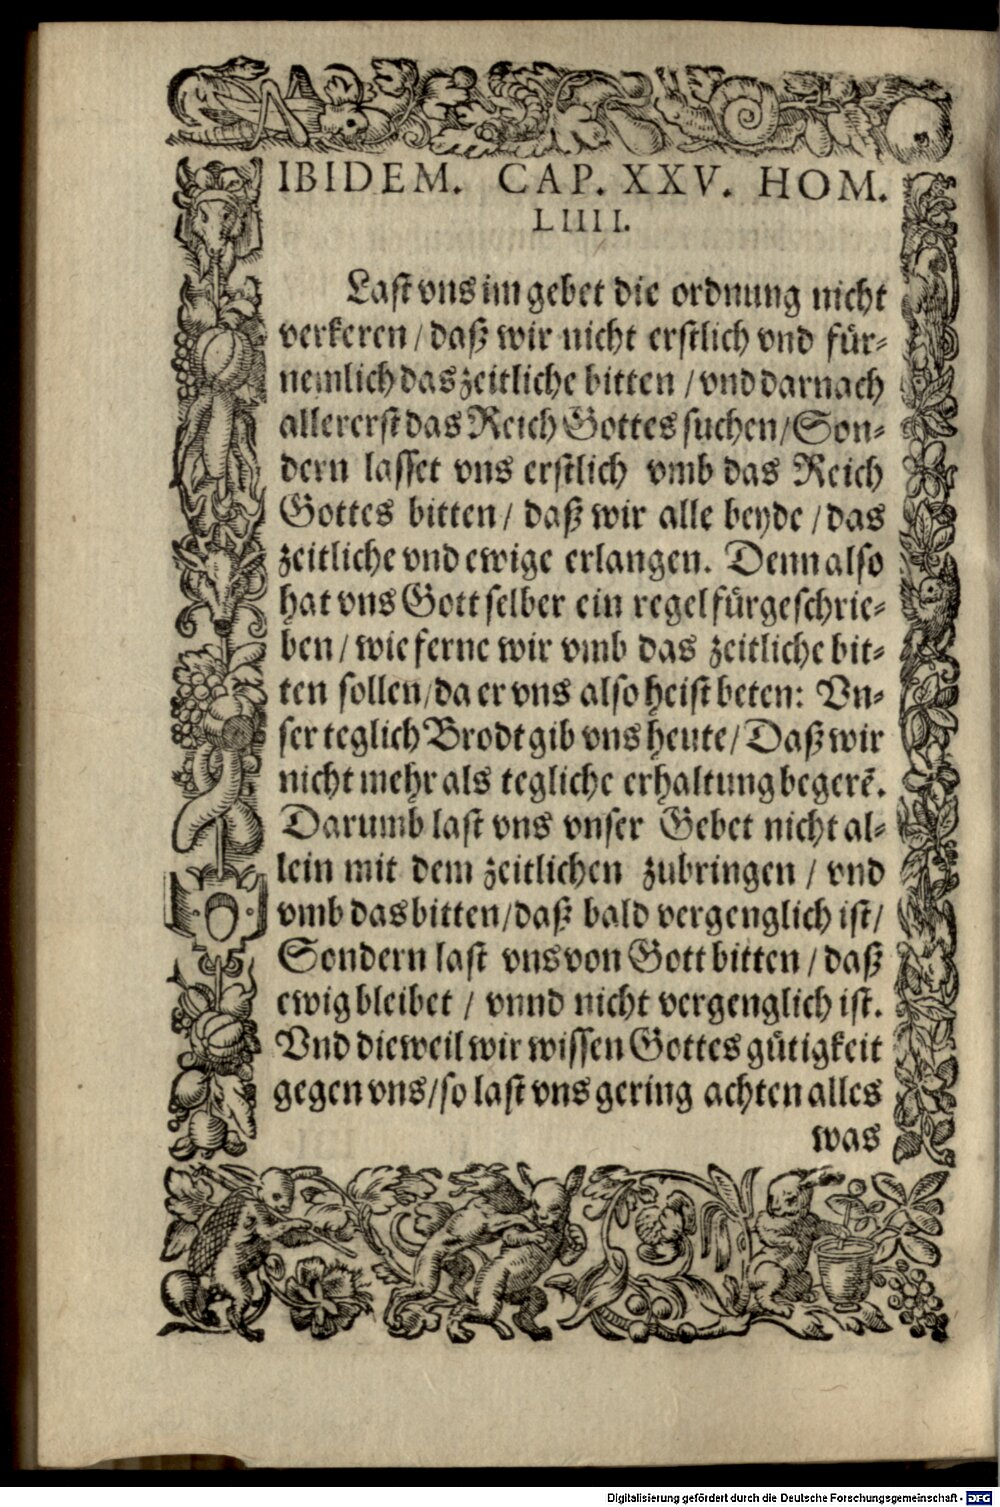 IBIDEM. CAP. XXV. HOM.
LIIII.
Last vns im gebet die ordnung nicht
verkeren / daß wir nicht erstlich vnd für-
nemlich das zeitliche bitten / vnd darnach
allererst das Reich Gottes suchen / Son-
dern lasset vns erstlich vmb das Reich
Gottes bitten / daß wir alle beyde / das
zeitliche vnd ewige erlangen. Denn also
hat vns Gott selber ein regel fürgeschrie-
ben / wie ferne wir vmb das zeitliche bit-
ten sollen / da er vns also heist beten: Vn-
ser teglich Brodt gib vns heute / Daß wir
nicht mehr als tegliche erhaltung begerẽ.
Darumb last vns vnser Gebet nicht al-
lein mit dem zeitlichen zubringen / vnd
vmb das bitten / daß bald vergenglich ist /
Sondern last vns von Gott bitten / daß
ewig bleibet / vnnd nicht vergenglich ist.
Vnd dieweil wir wissen Gottes gütigkeit
gegen vns / so last vns gering achten alles
was
Digitalisierung gefördert durch die Deutsche Forschungsgemeinschaft - DFG